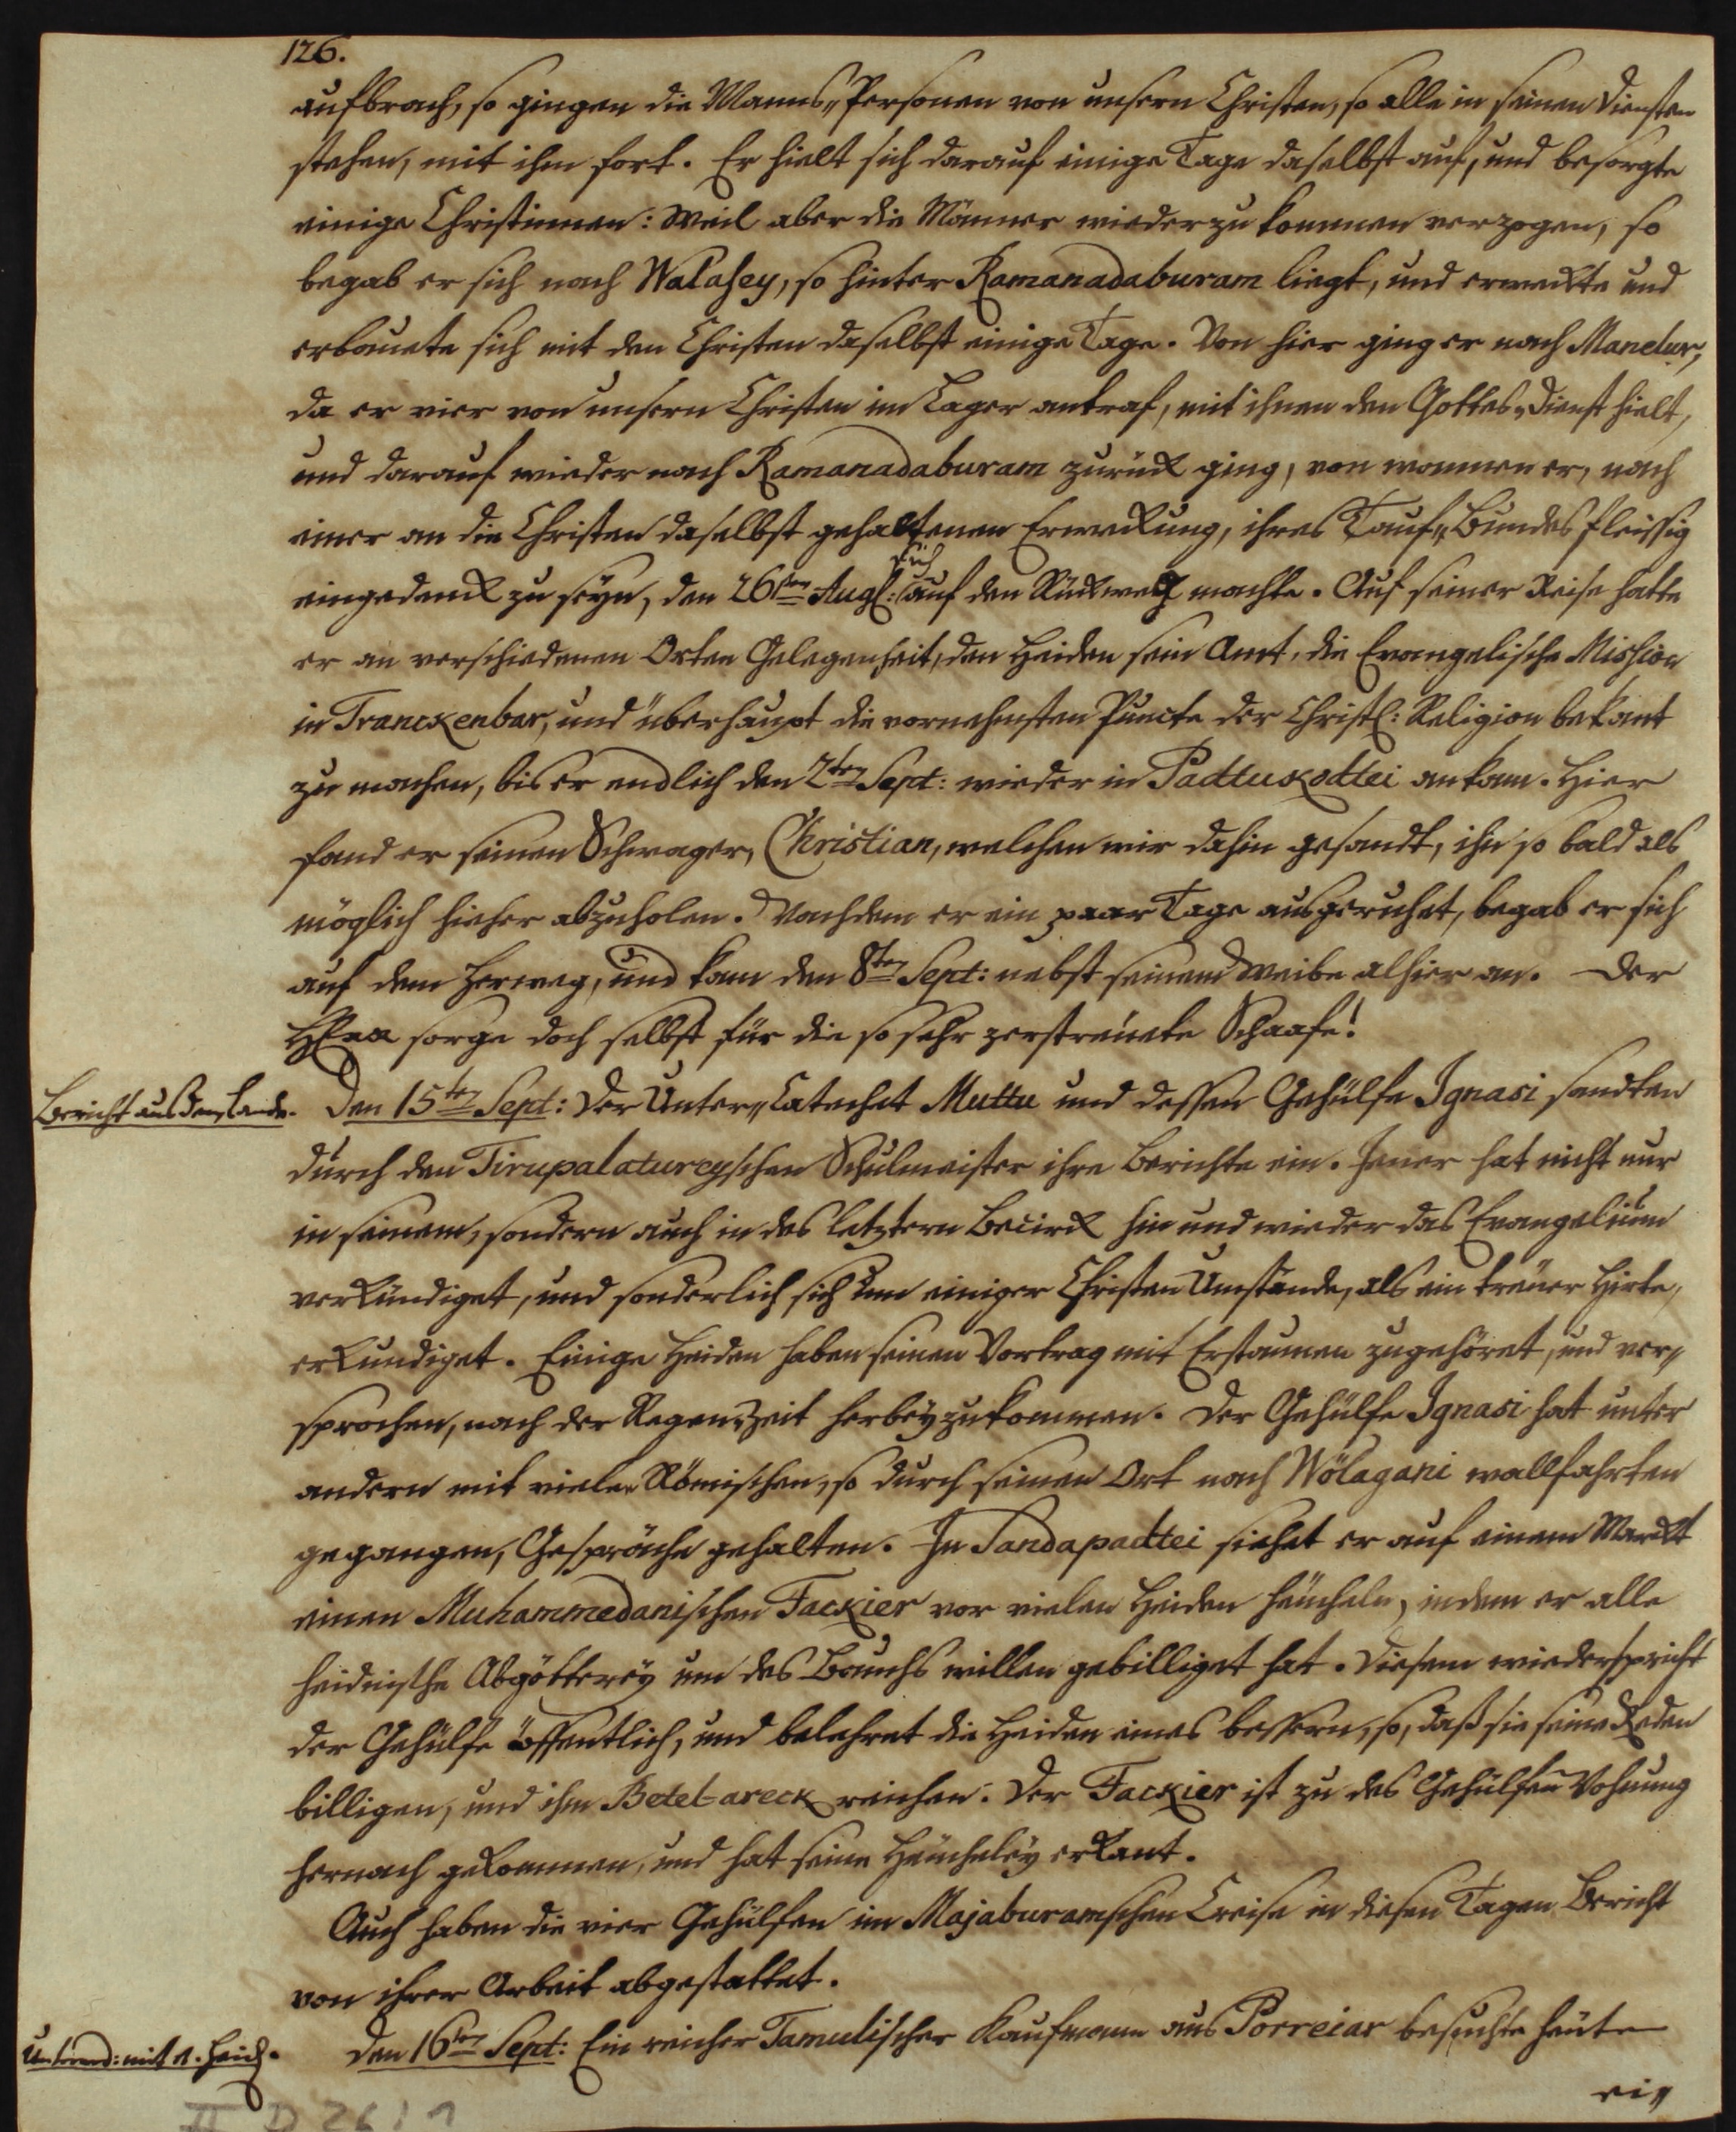 126.
aufbrach, so gingen die Manns„Personen von unsern Christen, so alle in seinen Diensten
stehen, mit ihm fort. Er hielt sich darauf einige Tage daselbst auf, und besorgte
einige Christinnen: Weil aber die Männer wiederzukommen verzogen, so
begab er sich nach Walasey, so hinter Ramanadaburam liegt, und erweckte und
erbauete sich mit den Christen daselbst einige Tage. Von hier ging er nach Mandur,
da er vier von unsern Christen im Lager antraf, mit ihnen den Gottes„Dienst hielt,
und darauf wieder nach Ramanadaburam zurück ging, von wannen er, nach
einer an die Christen daselbst gehaltenen Erweckung, ihres Tauf„Bundes fleissig
sich
eingedenck zu seyn, den 26ten Aug: auf den Rückweg machte. Auf seiner Reise hatte
er an verschiedenen Orten Gelegenheit, den Heiden sein Amt, die Evangelische Mission
in Tranckenbar, und überhaupt die vornehmsten Puncte der Christl: Religion bekant
zu machen, bis er endlich den 2ten Sept: wieder in Padtukodtei ankam. Hier
fand er seinen Schwager, Christian, welchen wir dahin gesandt, ihn so bald als
möglich hieher abzuholen. Nachdem er ein paar Tage ausgeruhet, begab er sich
auf dem Herweg, und kam den 8ten Sept: nebst seinem Weibe alhier an. Der
HErr sorge doch selbst für die so sehr zerstreuete Schaafe!
Bericht aus dem Lande. Den 15ten Sept: Der Unter„Catechet Muttu und dessen Gehülfe Ignasi sandten
durch den Tirupalatureyschen Schulmeister ihre Berichte ein. Jener hat nicht nur
in seinem, sondern auch in des letztern Becirck hin und wieder das Evangelium
verkündiget, und sonderlich sich um einiger Christen Umstände, als ein treuer Hirte,
erkundiget. Einige Heiden haben seinen Vortrag mit Erstaunen zugehöret, und ver„
sprochen, nach der Regenzeit herbeyzukommen. Der Gehülfe Ignasi hat unter
andern mit vielen Römischen, so durch seinen Ort nach Wölagani wallfahrten
gegangen, Gespräche gehalten. In Sandapadtei siehet er auf einem Marckt
einen Muhammedanischen Fackier vor vielen Heiden heucheln, indem er alle
heidnische Abgötterey um des Bauchs willen gebilliget hat. Diesem wiederspricht
der Gehülfe öffentlich, und belehret die Heiden eines bessern, so, daß sie seine Reden
billigen, und ihm Betel-areck reichen. Der Fackier ist zu des Gehülfen Wohnung
hernach gekommen, und hat seine Heucheley erkant.
Auch haben die vier Gehülfen im Majaburamschen Creise in diesen Tagen Bericht
von ihrer Arbeit abgestattet.
Unterred: mit 1. Heid. Den 16ten Sept: Ein reicher Tamulischer Kaufmann aus Porreiar besuchte heute
ei„
II D 26:1